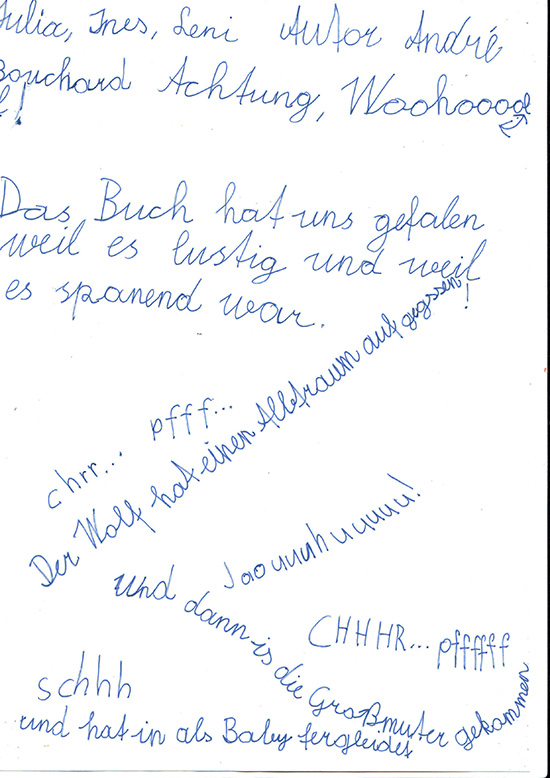 Julia, Ines, Leni Autor André
Bouchard Achtung, Woohoooo
!
Das Buch hat uns gefalen
weil es lustig und weil
es spanend war.
chrr... pfff...
Der Wolf hat einen Albtraum auf gegssen!
Jaouuuhuuuuu!
und dann is die Großmuter gekommen
CHHHR... pffffff
schhh
und hat in als Baby fergleidet